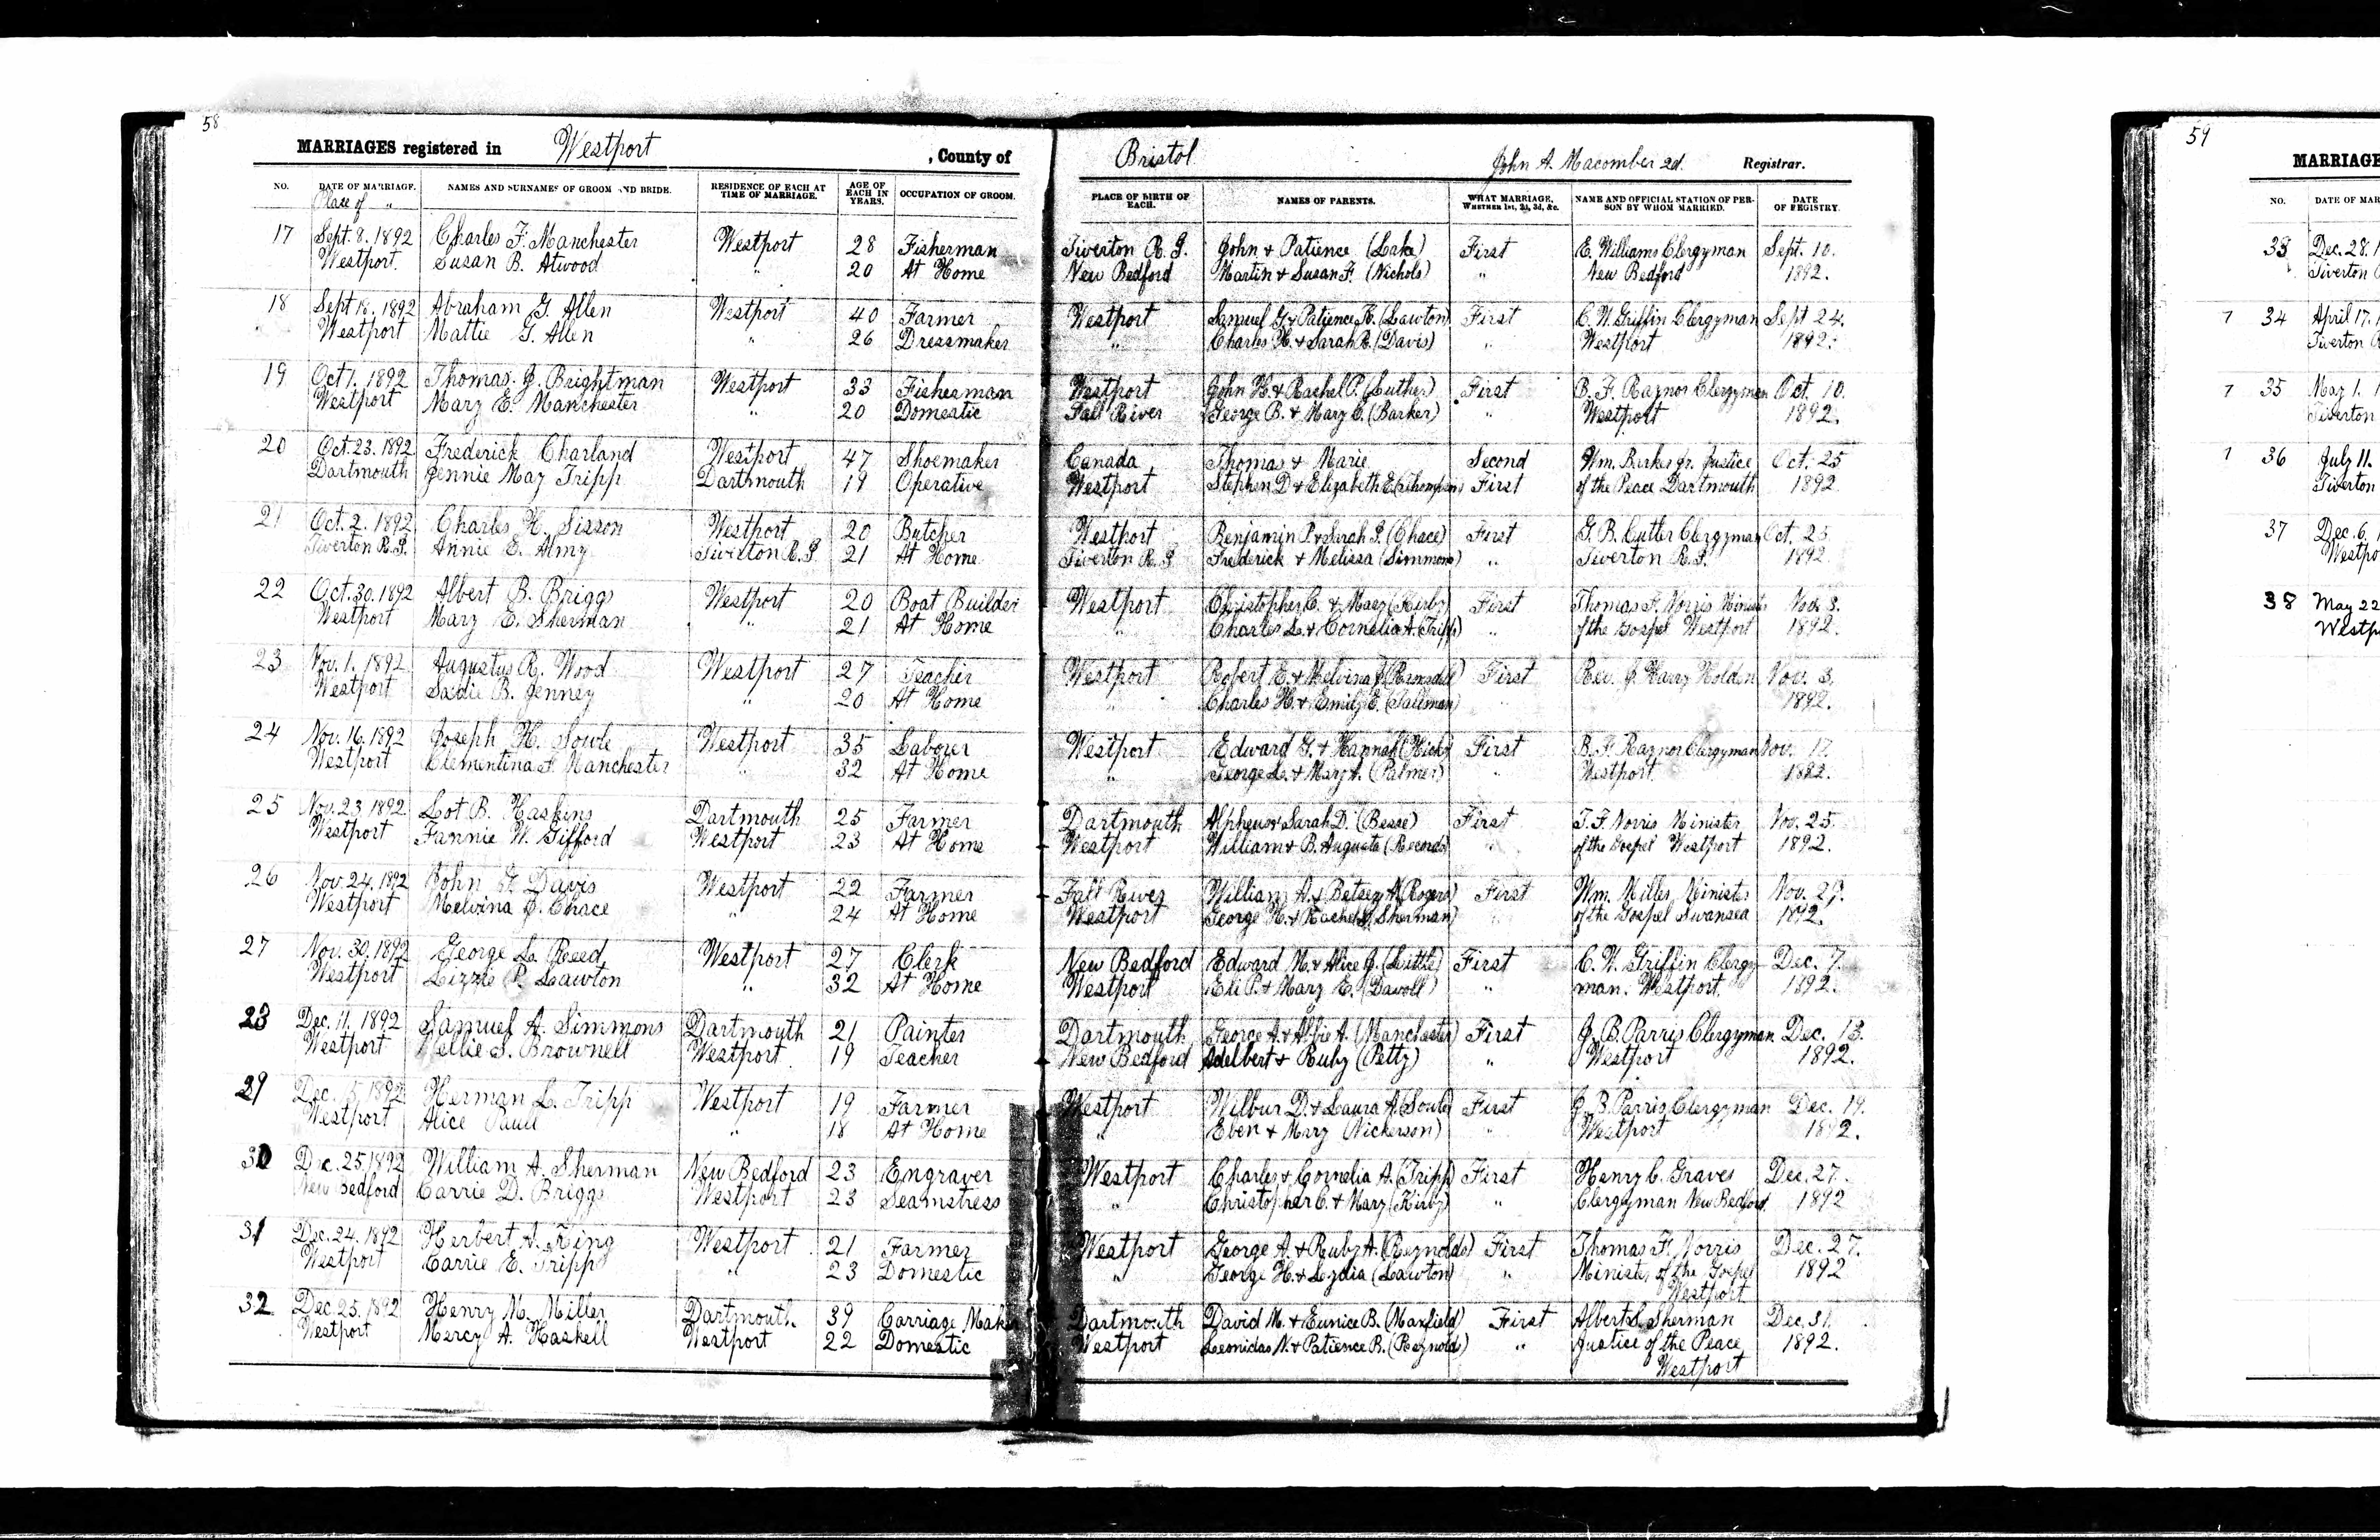 58
MARRIAGES registered in Westport , County of Bristol John A. Macomber 2d. Registrar.
NO. DATE OF MARRIAGE. NAMES AND SURNAMES OF GROOM AND BRIDE. RESIDENCE OF EACH AT TIME OF MARRIAGE. AGE OF EACH IN YEARS. OCCUPATION OF GROOM. PLACE OF BIRTH OF EACH. NAMES OF PARENTS. WHAT MARRIAGE, WHETHER 1st, 2d, 3d, &c. NAME AND OFFICIAL STATION OF PERSON BY WHOM MARRIED. DATE OF REGISTRY.
Place of "
17 Sept. 8. 1892 Charles F. Manchester Westport 28 Fisherman Tiverton R. I. John & Patience (Lake) First E. Williams Clergyman Sept. 10.
Westport. Susan B. Atwood " 20 At Home New Bedford Martin & Susan F. (Nichols) " New Bedford 1892.
18 Sept 18. 1892 Abraham G. Allen Westport 40 Farmer Westport Samuel G. & Patience H. (Lawton) First C. W. Griffin Clergyman Sept 24.
Westport Mattie G. Allen " 26 Dressmaker " Charles H. & Sarah R. (Davis) " Westport 1892.
19 Oct 1. 1892 Thomas. J. Brightman Westport 33 Fisherman Westport John H. & Rachel P. (Luther) First B. F. Raynor Clergyman Oct. 10.
Westport Mary E. Manchester " 20 Domestic Fall River George B. & Mary E. (Barker) " Westport 1892.
20 Oct. 23. 1892 Frederick Charland Westport 47 Shoemaker Canada Thomas & Marie Second Wm. Barker Jr. Justice Oct. 25
Dartmouth Jennie May Tripp Dartmouth 19 Operative Westport Stephen D & Elizabeth E. (Thompson) First of the Peace Dartmouth 1892
21 Oct. 2. 1892 Charles H. Sisson Westport 20 Butcher Westport Benjamin P. & Sarah J. (Chace) First G. B. Cutler Clergyman Oct. 25
Tiverton R. I. Annie E. Almy Tiverton R. I. 21 At Home Tiverton R. I. Frederick & Melissa (Simmons) " Tiverton R. I. 1892
22 Oct. 30. 1892 Albert B. Briggs Westport 20 Boat Builder Westport Christopher C. & Mary (Kirby) First Thomas F. Norris Minister Nov. 3.
Westport Mary E. Sherman " 21 At Home " Charles L. & Cornelia A. (Tripp) " of the Gospel Westport 1892.
23 Nov. 1. 1892 Augustus R. Wood Westport 27 Teacher Westport Robert E. & Melvina First Rev. J. Harry Holden Nov. 3.
Westport Sadie B. Jenney " 20 At Home " Charles H. & Emily E. (Tallman) " 1892.
24 Nov. 16. 1892 Joseph H. Sowle Westport 35 Laborer Westport Edward G. & Hannah (Hicks) First B. F. Raynor Clergyman Nov. 17.
Westport Clementina F. Manchester " 32 At Home " George L. & Mary A. (Palmer) " Westport. 1892.
25 Nov. 23 1892 Lot B. Haskins Dartmouth 25 Farmer Dartmouth Alpheus & Sarah D. (Besse) First T. F. Norris Minister Nov. 25.
Westport Fannie W. Gifford Westport 23 At Home Westport William & B. Augusta (Records) " of the Gospel Westport 1892.
26 Nov. 24. 1892 John F. Davis Westport 22 Farmer Fall River William A. & Betsey A. (Rogers) First Wm. Miller Minister Nov. 29.
Westport Melvina J. Chace " 24 At Home Westport George H. & Rachel (Sherman) " of the Gospel Swansea 1892.
27 Nov. 30. 1892 George L. Reed Westport 27 Clerk New Bedford Edward M. & Alice J. (Little) First C. W. Griffin Clergy- Dec. 7.
Westport Lizzie P. Lawton " 32 At Home Westport Eli P. & Mary E. (Davoll) " man. Westport. 1892.
28 Dec. 11. 1892 Samuel A. Simmons Dartmouth 21 Painter Dartmouth George A. & Abbie A. (Manchester) First J. B. Parris Clergyman Dec. 13.
Westport Nellie S. Brownell Westport. 19 Teacher New Bedford Adelbert & Ruby (Petty) " Westport 1892.
29 Dec. 15. 1892 Herman L. Tripp Westport 19 Farmer Westport Wilbur D. & Laura A. (Soule) First J. B. Parris Clergyman Dec. 19.
Westport Alice Paull " 18 At Home " Eben & Mary (Nickerson) " Westport 1892.
30 Dec. 25. 1892 William A. Sherman New Bedford 23 Engraver Westport Charles & Cornelia A. (Tripp) First Henry C. Graves Dec. 27.
New Bedford Carrie D. Briggs Westport 23 Seamstress " Christopher C. & Mary (Kirby) " Clergyman New Bedford. 1892
31 Dec. 24. 1892 Herbert A. King Westport 21 Farmer Westport George A. & Ruby A. (Reynolds) First Thomas F. Norris Dec. 27.
Westport Carrie E. Tripp " 23 Domestic " George H. & Lydia (Lawton) " Minister of the Gospel 1892
Westport
32 Dec. 25. 1892 Henry M. Miller Dartmouth. 39 Carriage Maker Dartmouth David M. & Eunice B. (Maxfield) First Albert S. Sherman Dec. 31.
Westport Mercy A. Haskell Westport 22 Domestic Westport Leonidas N. & Patience R. (Reynolds) " Justice of the Peace 1892.
Westport
59
MARRIAGE
NO. DATE OF MAR
33 Dec. 28. 1
Tiverton
7 34 April 17. 1
Tiverton
7 35 May 1. 1
Tiverton
1 36 July 11.
Tiverton
37 Dec. 6.
Westpo
38 May 22
Westp